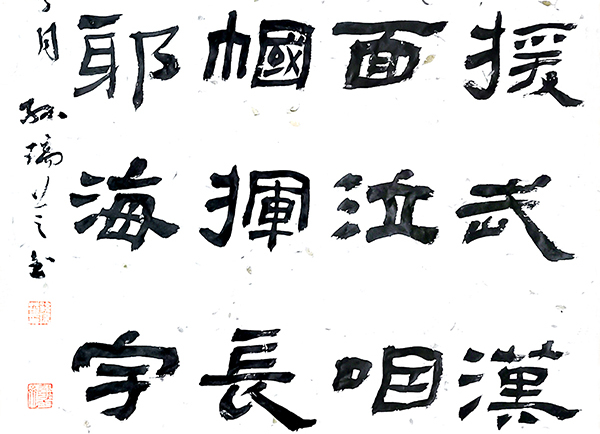 援武漢
面泣咱
幗揮長
耶海宇
月 孫瑞芝書